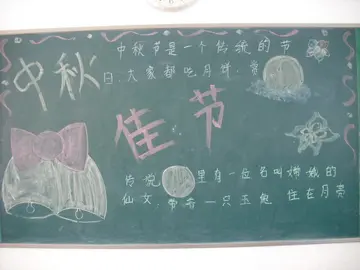 中秋
佳节
中秋节是一个传统的节
日,大家都吃月饼,赏
传说 里有一位名叫嫦娥的
仙女,带着一只玉兔 住在月亮